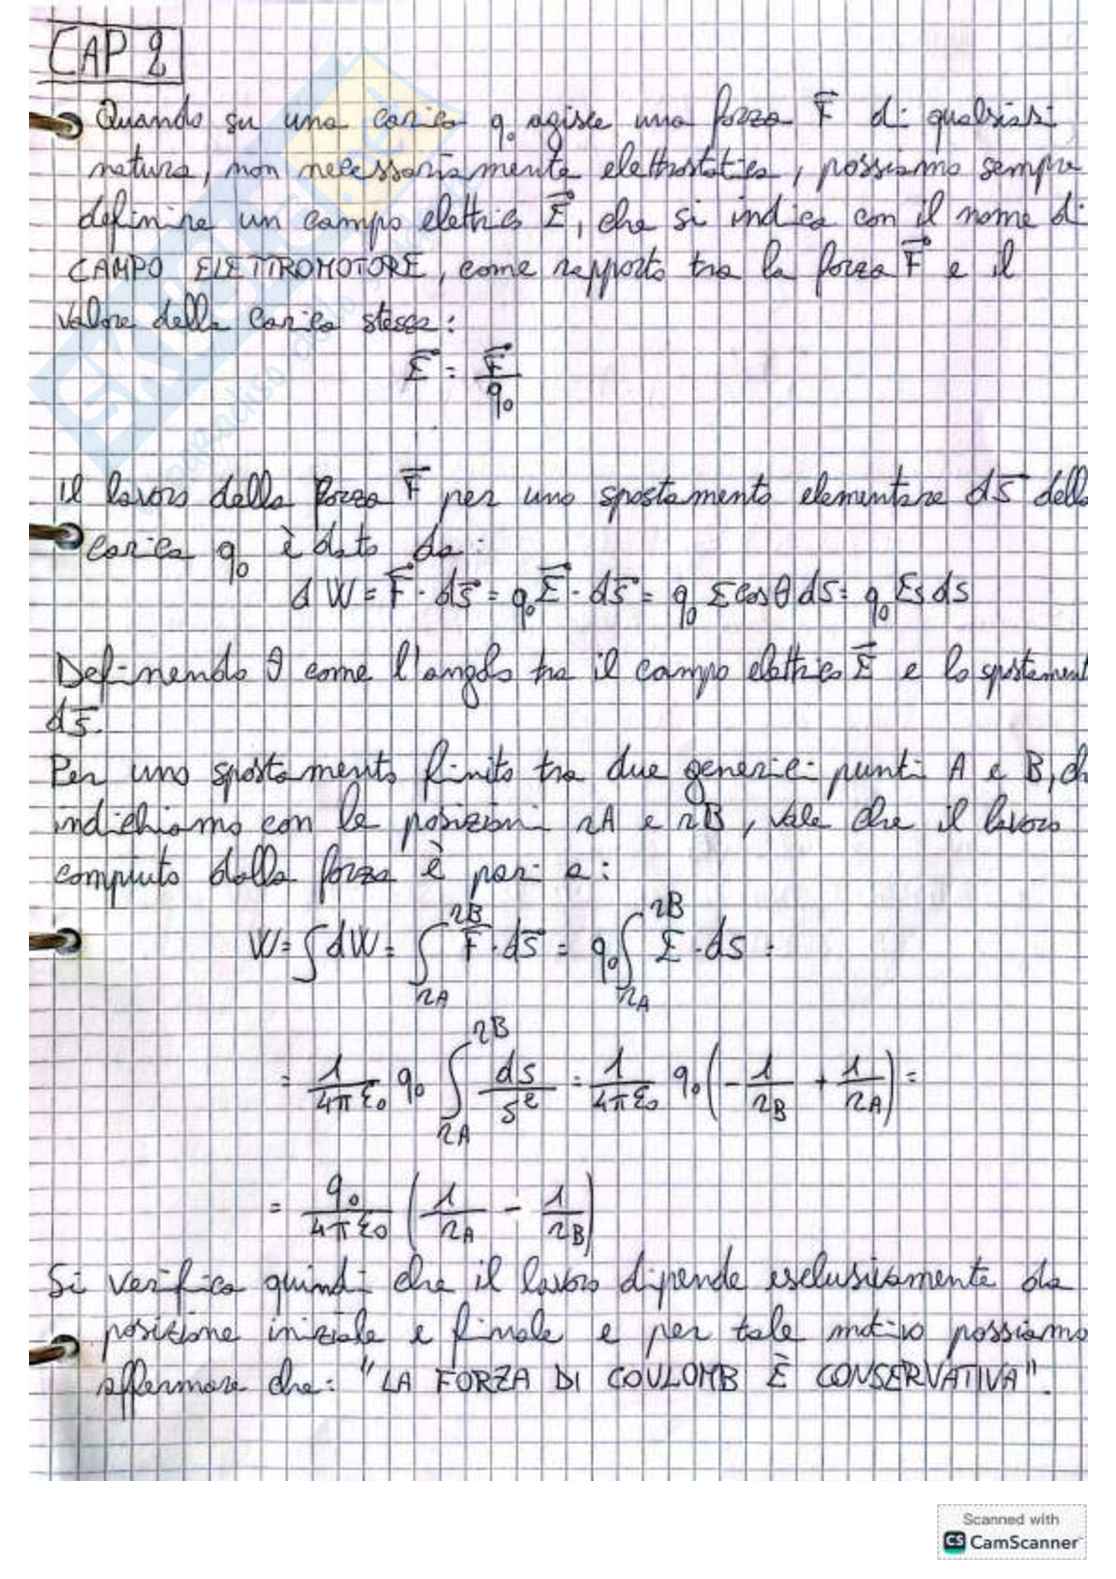 CAP 2
Quando su una carica q₀ agisce una forza F⃗ di qualsiasi
natura, non necessariamente elettrostatica, possiamo sempre
definire un campo elettrico E⃗, che si indica con il nome di
CAMPO ELETTROMOTORE, come rapporto tra la forza F⃗ e il
valore della carica stessa:
E⃗ = F⃗/q₀
Il lavoro della forza F⃗ per uno spostamento elementare ds̄ della
carica q₀ è dato da:
dW = F⃗ · ds̄ = q₀E⃗ · ds̄ = q₀ E cosθ ds = q₀ Es ds
Definendo θ come l'angolo tra il campo elettrico E⃗ e lo spostament
ds̄.
Per uno spostamento finito tra due generici punti A e B, ch
indichiamo con le posizioni rA e rB, vale che il lavoro
compiuto dalla forza è pari a:
W = ∫dW = ∫_{rA}^{rB} F̄ · ds̄ = q₀∫_{rA}^{rB} Ē · ds =
= 1/4πε₀ q₀ ∫_{rA}^{rB} ds/s² = 1/4πε₀ q₀ (-1/r_B + 1/r_A) =
= q₀/4πε₀ (1/r_A - 1/r_B)
Si verifica quindi che il lavoro dipende esclusivamente da
posizione iniziale e finale e per tale motivo possiamo
affermare che: "LA FORZA DI COULOMB È CONSERVATIVA".
Scanned with
CS CamScanner